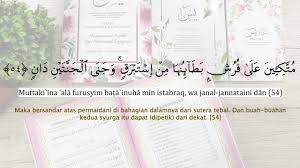 مُتَّكِـِٔينَ عَلَىٰ فُرُشٍۭ بَطَآئِنُهَا مِنْ إِسْتَبْرَقٍۢ ۚ وَجَنَى ٱلْجَنَّتَيْنِ دَانٍۢ ﴿٥٤﴾
Muttaki`īna `alā furusyim baṭā`inuhā min istabraq, wa janal-jannataini dān (54)
Maka bersandar atas permaidani di bahagian dalamnya dari sutera tebal. Dan buah-buahan
kedua syurga itu dapat (dipetik) dari dekat. (54)